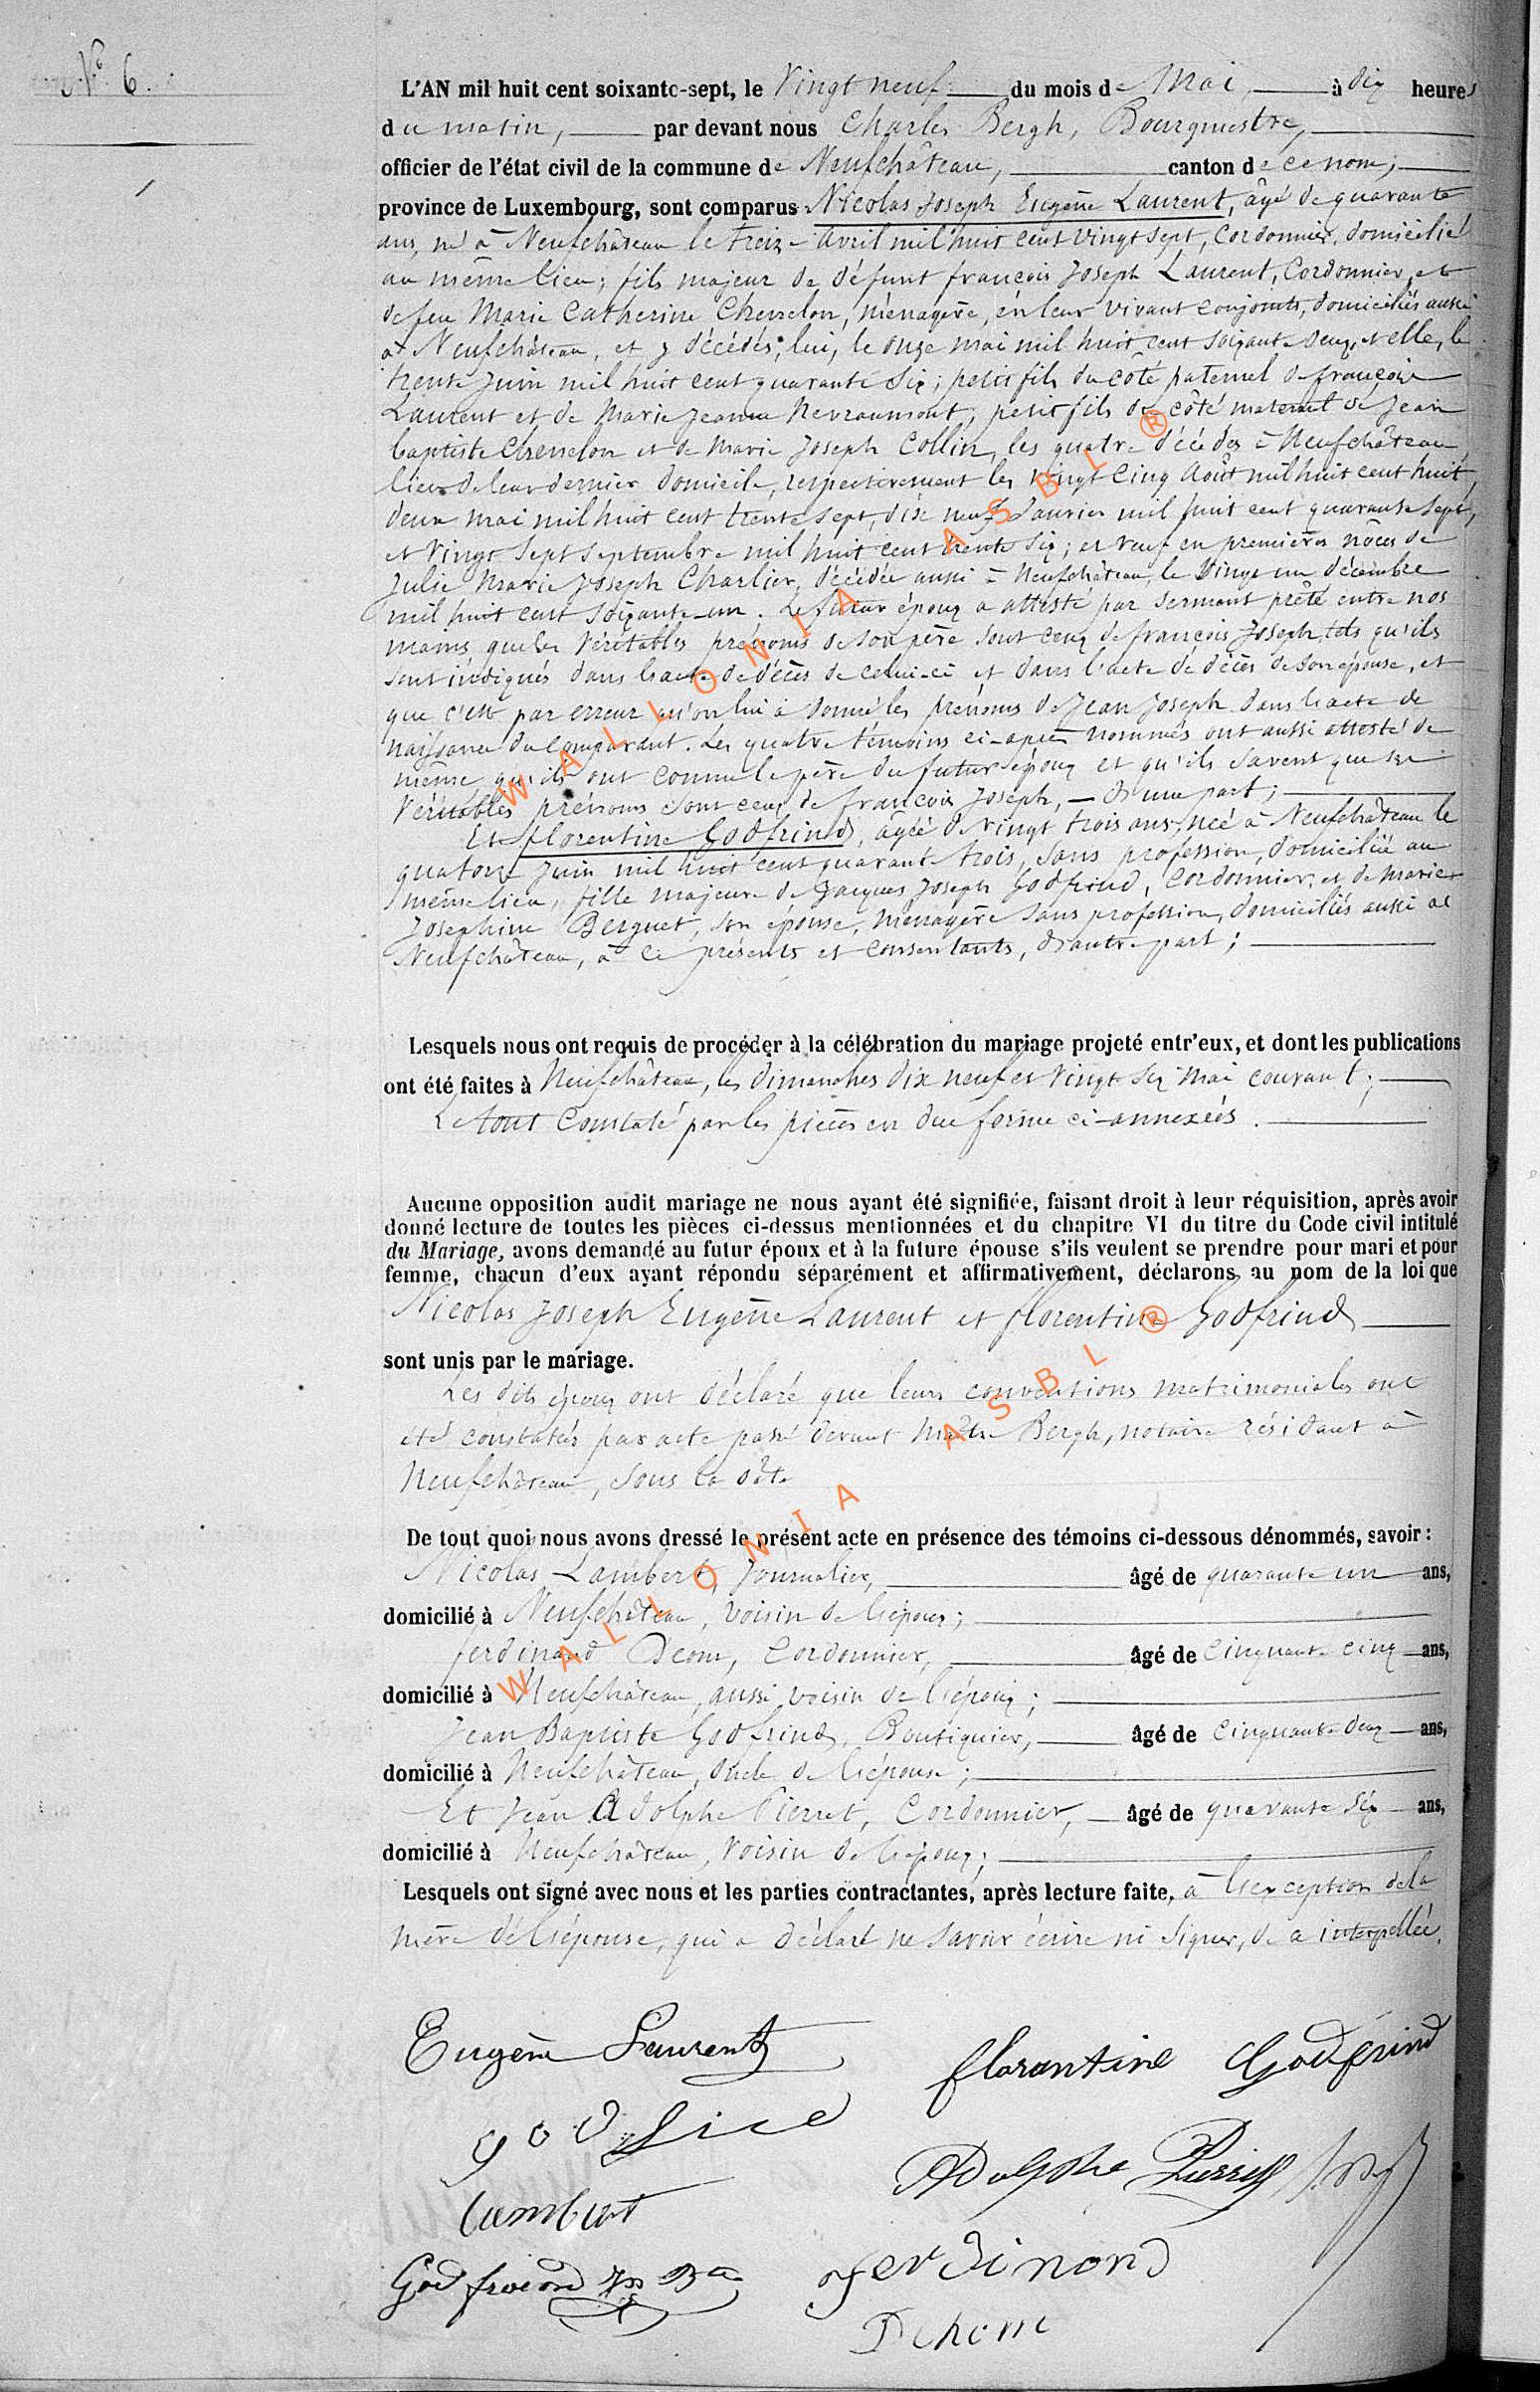 N° 6.
L'AN mil huit cent soixante-sept, le Vingt neuf du mois de Mai, à dix heures
du matin, par devant nous Charles Bergh, Bourgmestre,
officier de l'état civil de la commune de Neufchâteau, canton de ce nom,
province de Luxembourg, sont comparus Nicolas Joseph Eugène Laurent, âgé de quarante
ans, né à Neufchâteau le treize avril mil huit cent vingt sept, Cordonnier, domicilié
au même lieu; fils majeur de défunt françois Joseph Laurent, Cordonnier, et
de feu Marie Catherine Chenelon, ménagère, en leur vivant conjoints, domiciliés aussi
à Neufchâteau, et y décédés, lui, le onze mai mil huit cent soixante deux, et elle, le
trente Juin mil huit cent quarante six; petit fils du côté paternel de françois
Laurent et de Marie Jeanne Nevraumont, petit fils du côté maternel de Jean
baptiste Chenelon et de Marie Joseph Collin, les quatre décédés à Neufchâteau
lieu de leur dernier domicile, respectivement les vingt cinq Août mil huit cent huit,
deux mai mil huit cent trente sept, dix neuf Janvier mil huit cent quarante sept,
et vingt sept septembre mil huit cent trente six; et veuf en premières nôces de
Julie Marie Joseph Charlier, décédée aussi à Neufchâteau, le vingt un décembre
mil huit cent soixante un. Le futur époux a attesté par serment prêté entre nos
mains, que les véritables prénoms de son père sont ceux de françois Joseph, tels qu'ils
sont indiqués dans l'acte de décès de celui-ci et dans l'acte de décès de son épouse, et
que c'est par erreur qu'on lui a donné les prénoms de Jean Joseph dans l'acte de
naissance du comparant. Les quatre témoins ci-après nommés ont aussi attesté de
même qu'ils ont connu le père du futur époux et qu'ils savent que ses
véritables prénoms sont ceux de françois Joseph, d'une part;
Et florentine Godfrind, âgée de vingt trois ans, née à Neufchâteau le
quatorze Juin mil huit cent quarante trois, sans profession, domiciliée au
même lieu, fille majeure de Jacques Joseph Godfrind, cordonnier, et de Marie
Josephine Berguet, son épouse, ménagère sans profession, domiciliés aussi à
Neufchâteau, à ce présents et consentants, d'autre part;
Lesquels nous ont requis de procéder à la célébration du mariage projeté entr'eux, et dont les publications
ont été faites à Neufchâteau, les dimanches dix neuf et vingt six mai courant;
Le tout constaté par les pièces en due forme ci-annexées.
Aucune opposition audit mariage ne nous ayant été signifiée, faisant droit à leur réquisition, après avoir
donné lecture de toutes les pièces ci-dessus mentionnées et du chapitre VI du titre du Code civil intitulé
du Mariage, avons demandé au futur époux et à la future épouse s'ils veulent se prendre pour mari et pour
femme, chacun d'eux ayant répondu séparément et affirmativement, déclarons au nom de la loi que
Nicolas Joseph Eugène Laurent et florentine Godfrind
sont unis par le mariage.
Les dits époux ont déclaré que leurs conventions matrimoniales ont
été constatées par acte passé devant Maître Bergh, notaire résidant à
Neufchâteau, sous la date
De tout quoi nous avons dressé le présent acte en présence des témoins ci-dessous dénommés, savoir :
Nicolas Lambert, Journalier, âgé de quarante un ans,
domicilié à Neufchâteau, voisin de l'époux;
ferdinand Dcom, Cordonnier, âgé de cinquante cinq ans,
domicilié à Neufchâteau, aussi voisin de l'époux;
Jean Baptiste Godfrind, Boutiquier, âgé de cinquante deux ans,
domicilié à Neufchâteau, oncle de l'épouse;
Et Jean Adolphe Pierret, Cordonnier, âgé de quarante six ans,
domicilié à Neufchâteau, voisin de l'époux;
Lesquels ont signé avec nous et les parties contractantes, après lecture faite, à l'exception de la
mère de l'épouse, qui a déclaré ne savoir écrire ni signer, de ce interpellée.
Eugène Laurent
florantine Godfrind
Adolphe Pierret
Lambert
ferdinand
Dehom
WALLONIA ASBL ®
WALLONIA ASBL ®